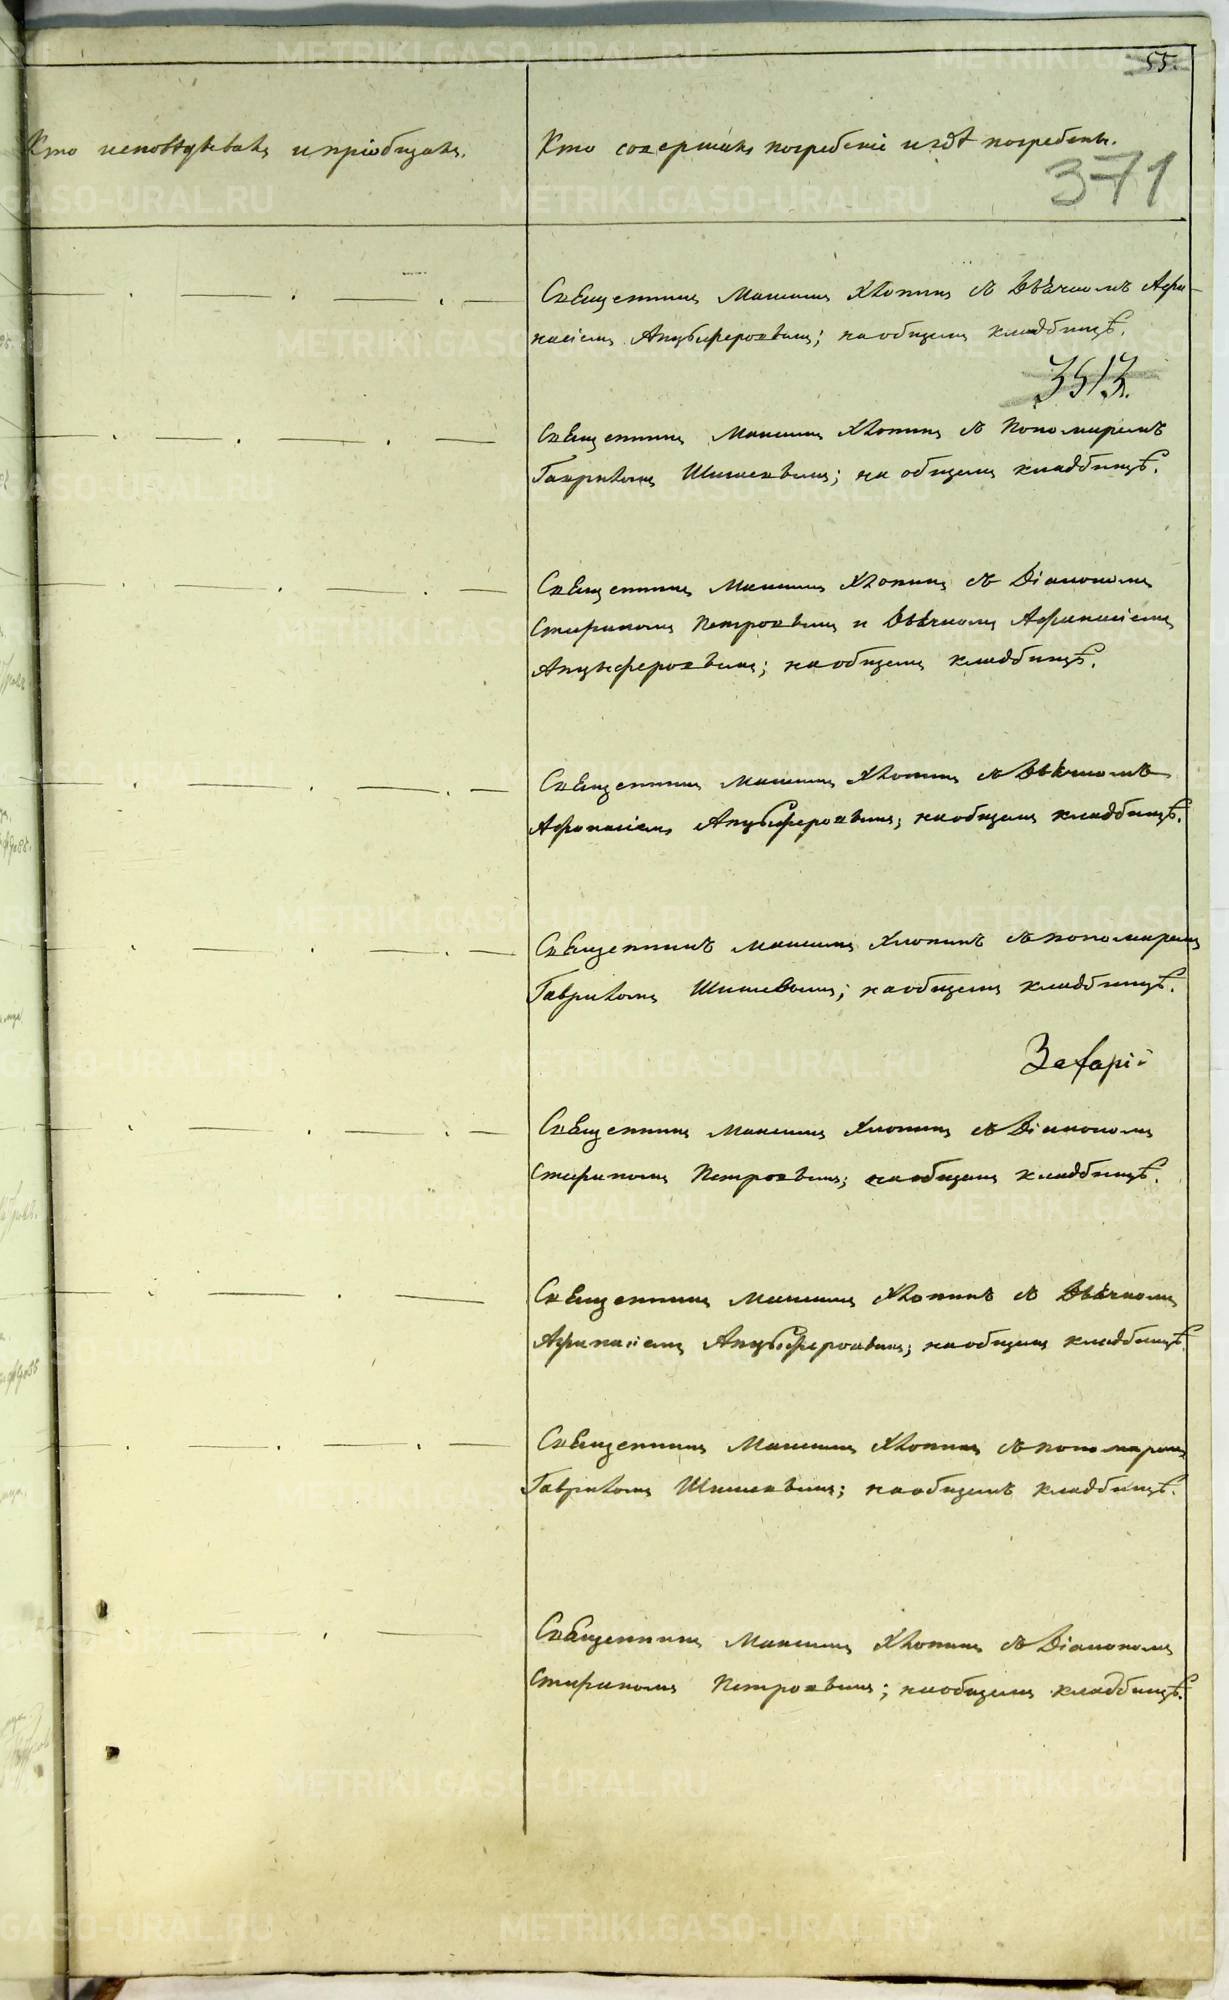 55.
Кто исповѣдывалъ и пріобщалъ.
Кто совершалъ погребеніе и гдѣ погребены.
371
Священникъ Максимъ Хлопинъ съ Дьячкомъ Афа-
насіемъ Анцыферовымъ; на общемъ кладбищѣ.
3513.
Священникъ Максимъ Хлопинъ съ Пономаремъ
Гавріиломъ Шишевымъ; на общемъ кладбищѣ.
Священникъ Максимъ Хлопинъ съ Діакономъ
Стефаномъ Петровымъ и Дьячкомъ Афанасіемъ
Анцыферовымъ; на общемъ кладбищѣ.
Священникъ Максимъ Хлопинъ съ Дьячкомъ
Афанасіемъ Анцыферовымъ; на общемъ кладбищѣ.
Священникъ Максимъ Хлопинъ съ пономаремъ
Гавріиломъ Шишевымъ; на общемъ кладбищѣ.
Захарій
Священникъ Максимъ Хлопинъ съ Діакономъ
Стефаномъ Петровымъ; на общемъ кладбищѣ.
Священникъ Максимъ Хлопинъ съ Дьячкомъ
Афанасіемъ Анцыферовымъ; на общемъ кладбищѣ.
Священникъ Максимъ Хлопинъ съ пономаремъ
Гавріиломъ Шишевымъ; на общемъ кладбищѣ.
Священникъ Максимъ Хлопинъ съ Діакономъ
Стефаномъ Петровымъ; на общемъ кладбищѣ.
METRIKI.GASO-URAL.RU